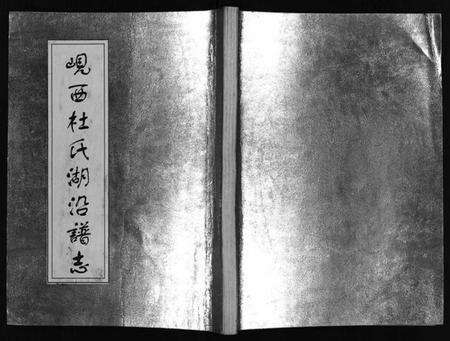 峴西杜氏湖沿譜志